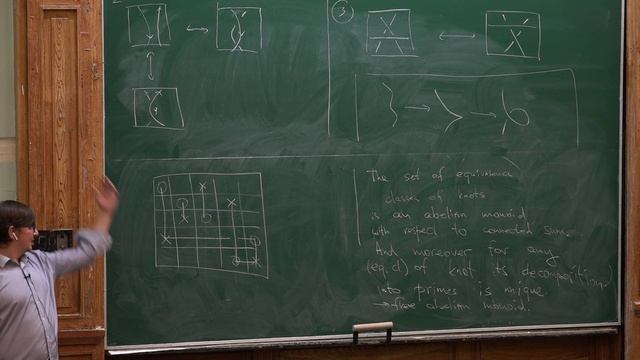 ③
The set of equivalence
classes of knots
is an abelian monoid
with respect to connected sum.
And moreover for any
(eq.cl) of knot its decomposition
into primes is unique.
→ free abelian monoid.